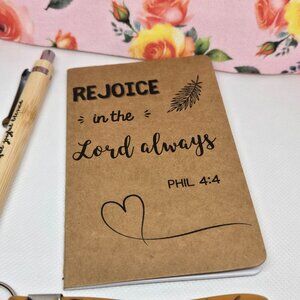 REJOICE
in the
Lord always
PHIL 4:4